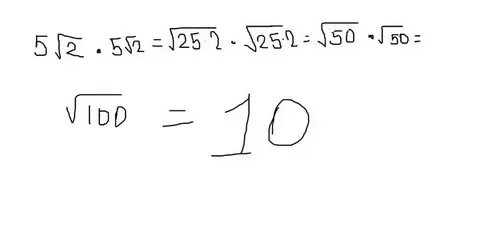 5√2 · 5√2 = √25·2 · √25·2 = √50 · √50 =
√100 = 10